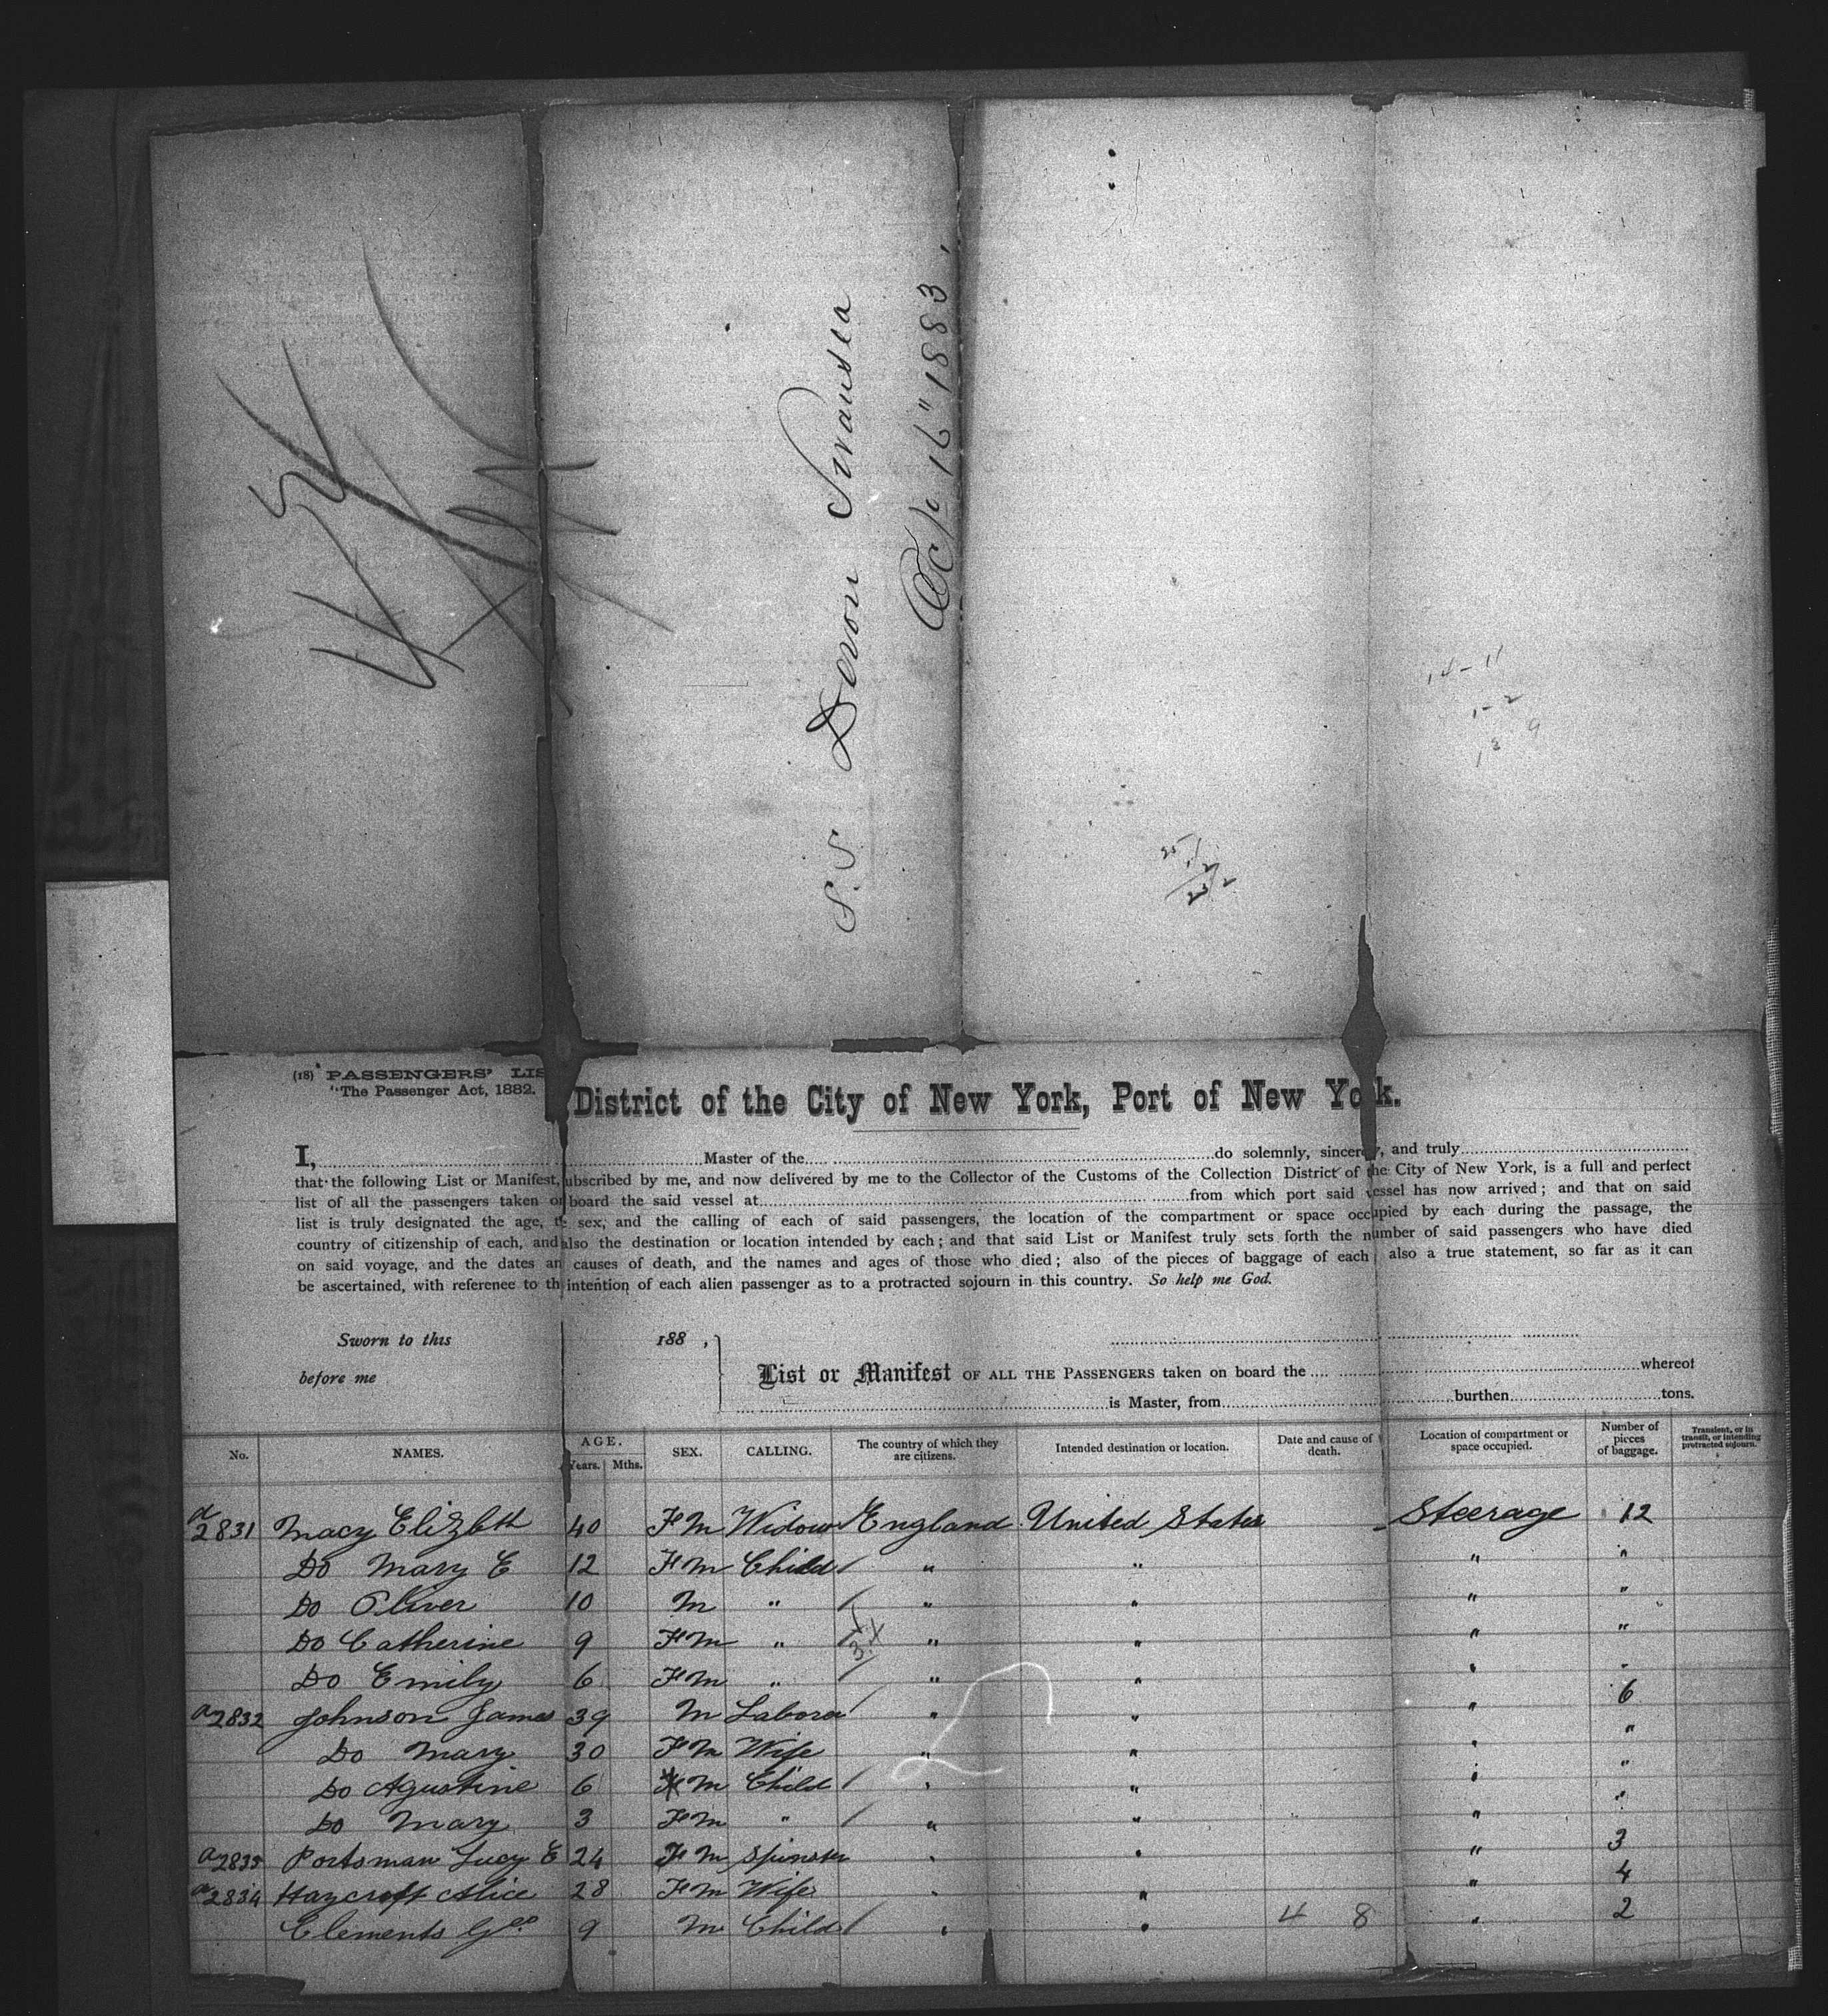 S.S Devon Swansea
Oct 16" 1883,
14-11
1-2
(18) PASSENGERS' LIS
"The Passenger Act, 1882.
District of the City of New York, Port of New Yo k.
I, Master of the do solemnly, sincere y, and truly
that the following List or Manifest, ubscribed by me, and now delivered by me to the Collector of the Customs of the Collection District of the City of New York, is a full and perfect
list of all the passengers taken on board the said vessel at from which port said vessel has now arrived; and that on said
list is truly designated the age, the sex, and the calling of each of said passengers, the location of the compartment or space occupied by each during the passage, the
country of citizenship of each, and also the destination or location intended by each; and that said List or Manifest truly sets forth the number of said passengers who have died
on said voyage, and the dates an causes of death, and the names and ages of those who died; also of the pieces of baggage of each also a true statement, so far as it can
be ascertained, with reference to th intention of each alien passenger as to a protracted sojourn in this country. So help me God.
Sworn to this 188 ,
before me
List or Manifest OF ALL THE PASSENGERS taken on board the whereof
is Master, from burthen tons.
No. NAMES. AGE. Years. Mths. SEX. CALLING. The country of which they are citizens. Intended destination or location. Date and cause of death. Location of compartment or space occupied. Number of pieces of baggage. Transient, or in transit, or intending protracted sojourn.
a2831 Macy Elizbth 40 F M Widow England United States Steerage 12
Do Mary E 12 F M Child / " " " "
Do Oliver 10 M " / " " " "
Do Catherine 9 F M " / " " " "
Do Emily 6 F M " / " " " "
a2832 Johnson James 39 M Laborer / " " " 6
Do Mary 30 F M Wife " " " "
Do Agustine 6 M Child / " " " "
Do Mary 3 F M " / " " " "
a2835 Portsman Lucy E 24 F M Spinster " " " 3
a2834 Haycroft Alice 28 F M Wife " " " 4
Clements Geo 9 M Child / " " 4 8 " 2